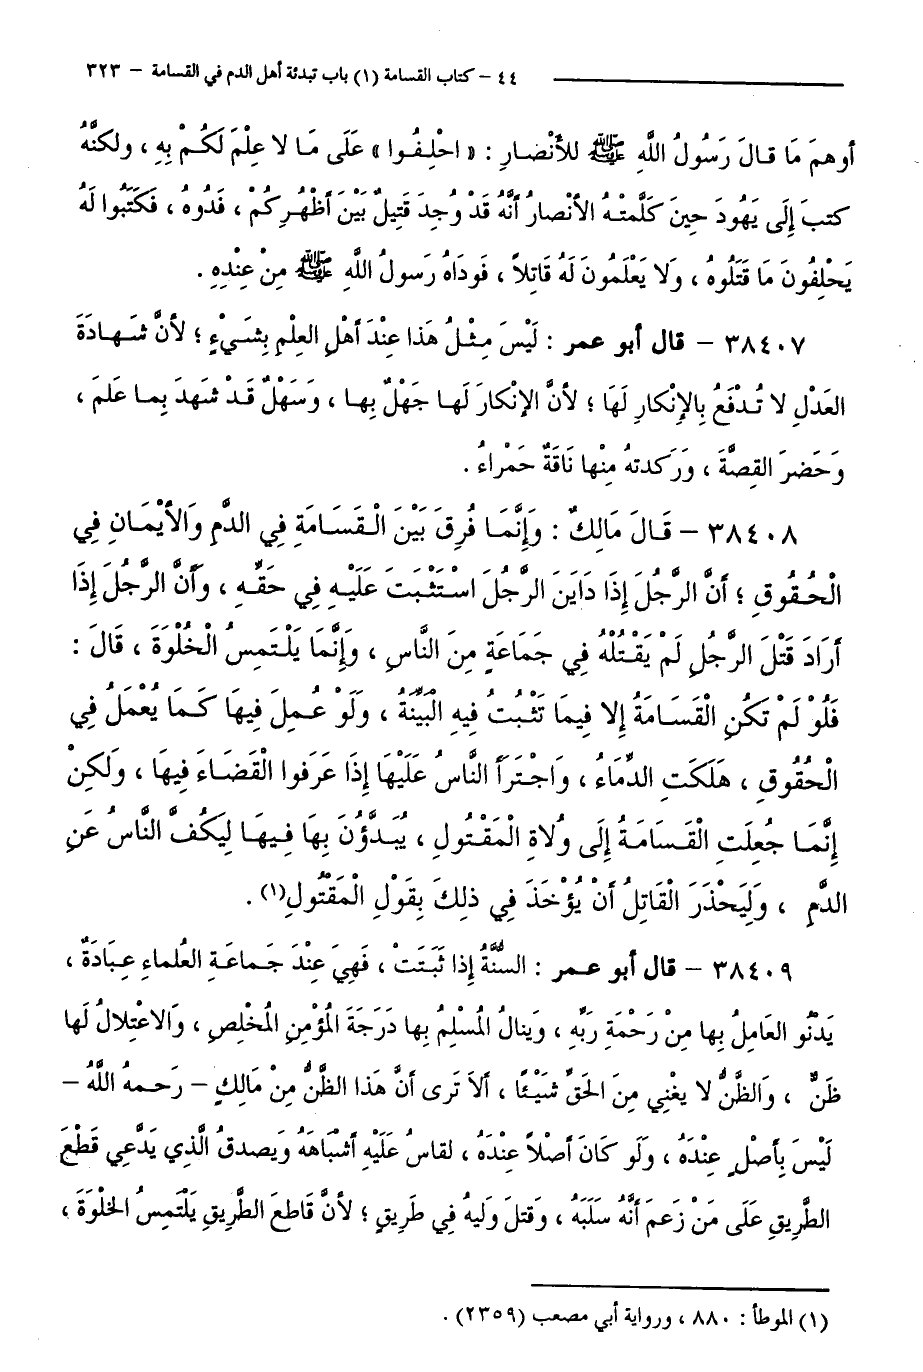 ٤٤ – كتاب القسامة (١) باب تبدئة أهل الدم في القسامة – ٣٢٣
أوهمَ مَا قالَ رَسُولُ اللَّهِ ﷺ للأنْصارِ : « احْلِفُوا » عَلَى مَا لا عِلْمَ لَكُمْ بِهِ ، ولكنَّهُ
كتبَ إِلَى يَهُودَ حِينَ كَلَّمتْهُ الأنْصارُ أنَّهُ قَدْ وُجِدَ قَتِيلٌ بَيْنَ أظْهُرِكُمْ ، فَدُوهُ ، فكَتَبُوا لَهُ
يَحْلِفُونَ مَا قَتَلُوهُ ، وَلا يَعْلَمُونَ لَهُ قَاتِلاً ، فَودَاهُ رَسولُ اللَّهِ ﷺ مِنْ عِنْدِهِ .
٣٨٤٠٧ – قال أبو عمر : لَيْسَ مِثْلُ هَذا عِنْدَ أهْلِ العِلْمِ بِشَيْءٍ ؛ لأنَّ شَهادَةَ
العَدْلِ لا تُدْفَعُ بِالإنْكارِ لَهَا ؛ لأنَّ الإنْكارَ لَها جَهْلٌ بِها ، وَسَهْلٌ قَدْ شهدَ بِما عَلمَ ،
وَحَضرَ القصَّةَ ، وَرَكَدتهُ مِنْها نَاقَةٌ حَمْراءُ .
٣٨٤٠٨ – قَالَ مَالِكٌ : وَإِنَّمَا فُرِقَ بَيْنَ الْقَسَامَةِ فِي الدَّمِ وَالأَيْمَانِ فِي
الْحُقُوقِ ؛ أنَّ الرَّجُلَ إذَا دَايَنَ الرَّجُلَ اسْتَثْبتَ عَلَيْهِ فِي حَقِّهِ ، وَأنَّ الرَّجُلَ إذَا
أرَادَ قَتْلَ الرَّجُلِ لَمْ يَقْتُلْهُ فِي جَمَاعَةٍ مِنَ النَّاسِ ، وَإِنَّمَا يَلْتَمِسُ الْخُلْوَةَ ، قَالَ :
فَلَوْ لَمْ تَكُنِ الْقَسَامَةُ إلا فِيمَا تَثْبُتُ فِيهِ الْبَيِّنَةُ ، وَلَوْ عُمِلَ فِيهَا كَمَا يُعْمَلُ فِي
الْحُقُوقِ ، هَلَكَتِ الدِّمَاءُ ، وَاجْتَرَأَ النَّاسُ عَلَيْهَا إِذَا عَرَفوا الْقَضَاءَ فِيهَا ، وَلَكِنْ
إِنَّمَا جُعِلَتِ الْقَسَامَةُ إِلَى وُلاةِ الْمَقْتُولِ ، يُبَدَّؤُنَ بِهَا فِيهَا لِيَكُفَّ النَّاسُ عَنِ
الدَّمِ ، وَلِيَحْذَرَ الْقَاتِلُ أنْ يُؤْخَذَ فِي ذلِكَ بِقَوْلِ الْمَقْتُولِ(١) .
٣٨٤٠٩ – قال أبو عمر : السُّنَّةُ إِذا ثَبَتَتْ ، فَهِيَ عِنْدَ جَماعَةِ العُلماءِ عِبَادَةٌ ،
يَدْنُو العَامِلُ بِها مِنْ رَحْمَةِ رَبِّهِ ، وَينالُ المُسْلِمُ بِها دَرَجَةَ المُؤْمِنِ المُخْلِصِ ، وَالاعْتِلالُ لَها
ظَنٌّ ، وَالظَّنُّ لا يغْنِي مِنَ الحَقِّ شَيْئًا ، ألا تَرى أنَّ هَذا الظَّنَّ مِنْ مَالِكٍ – رَحمهُ اللَّهُ –
لَيْسَ بِأصْلٍ عِنْدَهُ ، وَلَو كَانَ أصْلاً عنْدَهُ ، لقاسَ عَلَيْهِ أشْبَاهَهُ وَيصدقُ الَّذي يَدَّعِي قَطْعَ
الطَّرِيقِ عَلَى مَنْ زَعمَ أنَّهُ سَلَبَهُ ، وَقتلَ وَليهُ فِي طَرِيقٍ ؛ لأنَّ قَاطعَ الطَّرِيقِ يَلْتَمِسُ الخلْوَةَ ،
(١) الموطأ : ٨٨٠ ، ورواية أبي مصعب (٢٣٥٩) .